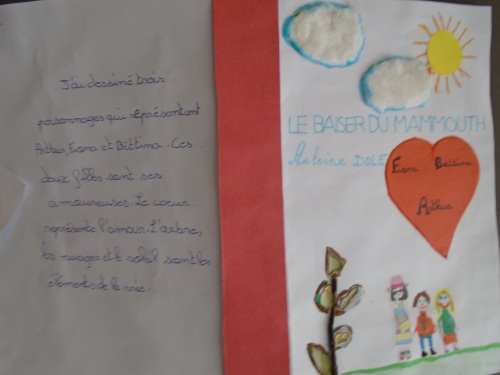 J'ai dessiné trois
personnages qui représentent
Arthur, Esma et Bettina. Ces
deux filles sont ses
amoureuses. Le coeur
représente l'amour. L'arbre,
les nuages et le soleil sont les
éléments de la vie.
LE BAISER DU MAMMOUTH
Antoine DOLE
Bettina
Arthur